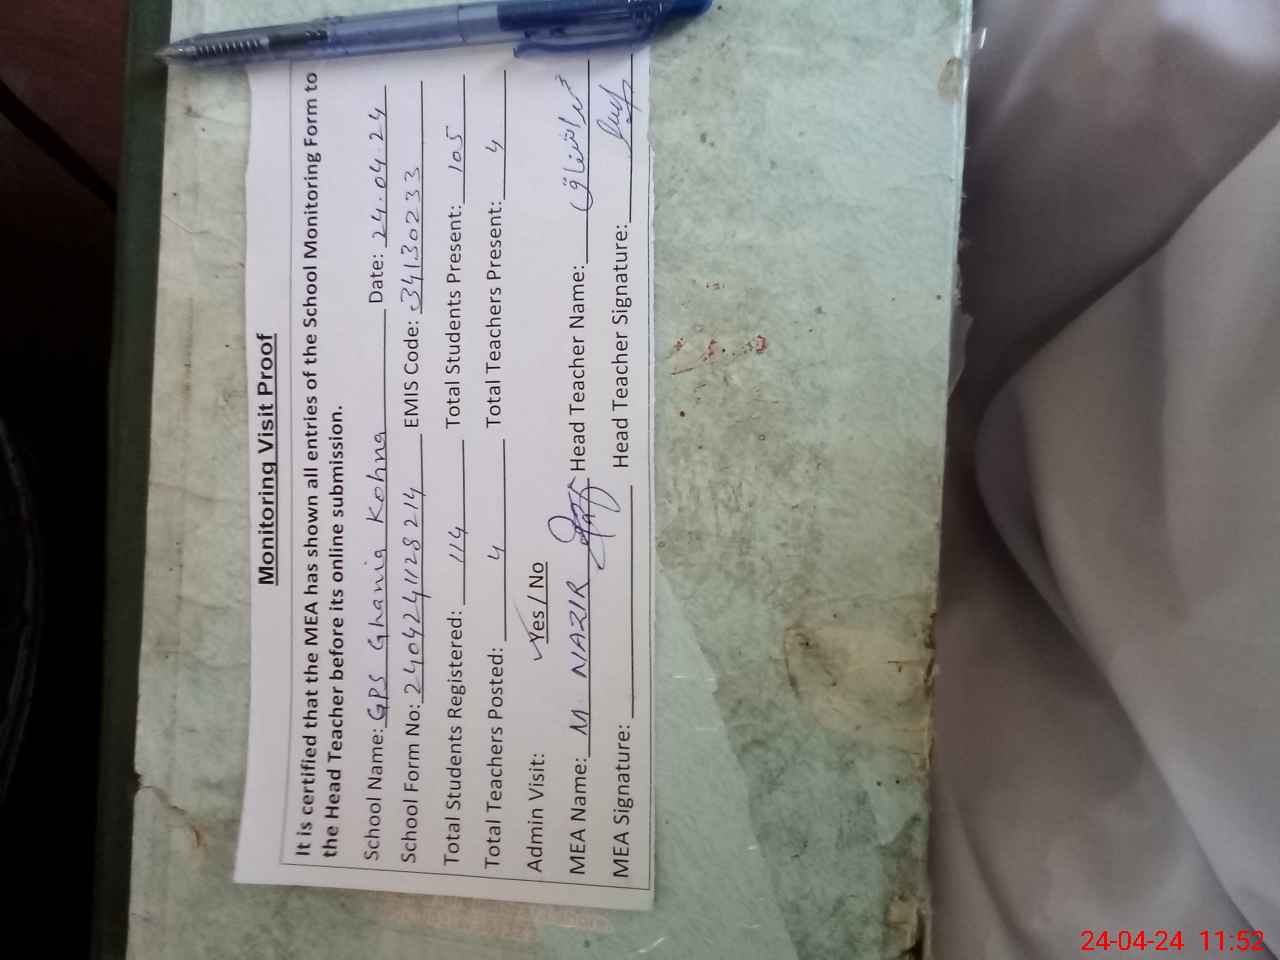 Monitoring Visit Proof
It is certified that the MEA has shown all entries of the School Monitoring Form to
the Head Teacher before its online submission.
School Name: GPS Ghania Kohna Date: 24.04 24
School Form No: 2404241128214 EMIS Code: 34130233
Total Students Registered: 114 Total Students Present: 105
Total Teachers Posted: 4 Total Teachers Present: 4
Admin Visit: Yes / No
MEA Name: M. NAZIR Head Teacher Name: اشتیاق
MEA Signature: Head Teacher Signature:
24-04-24 11:52